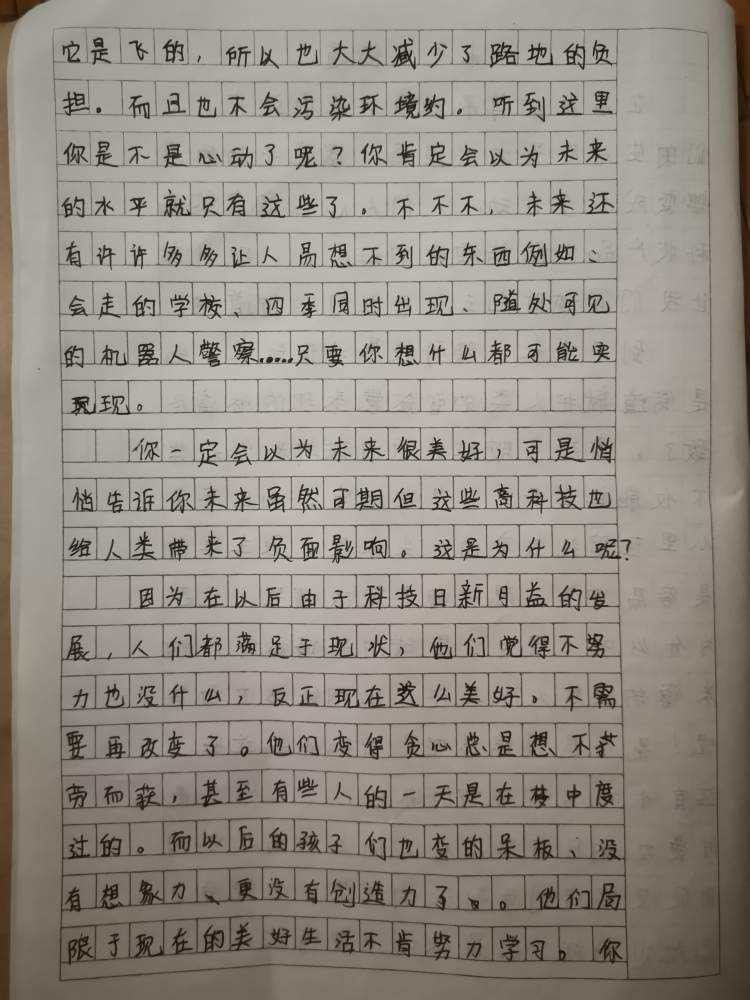 它是飞的，所以也大大减少了路地的负
担。而且也不会污染环境约。听到这里
你是不是心动了呢？你肯定会以为未来
的水平就只有这些了。不不不，未来还
有许许多多让人易想不到的东西例如：
会走的学校、四季同时出现、随处可见
的机器人警察……只要你想什么都可能实
现。
你一定会以为未来很美好，可是悄
悄告诉你未来虽然可期但这些高科技也
给人类带来了负面影响。这是为什么呢？
因为在以后由于科技日新月益的发
展，人们都满足于现状，他们觉得不努
力也没什么，反正现在这么美好。不需
要再改变了。他们变得贪心总是想不劳
而获，甚至有些人的一天是在梦中度
过的。而以后的孩子们也变的呆板、没
有想象力、更没有创造力了。他们局
限于现在的美好生活不肯努力学习。你